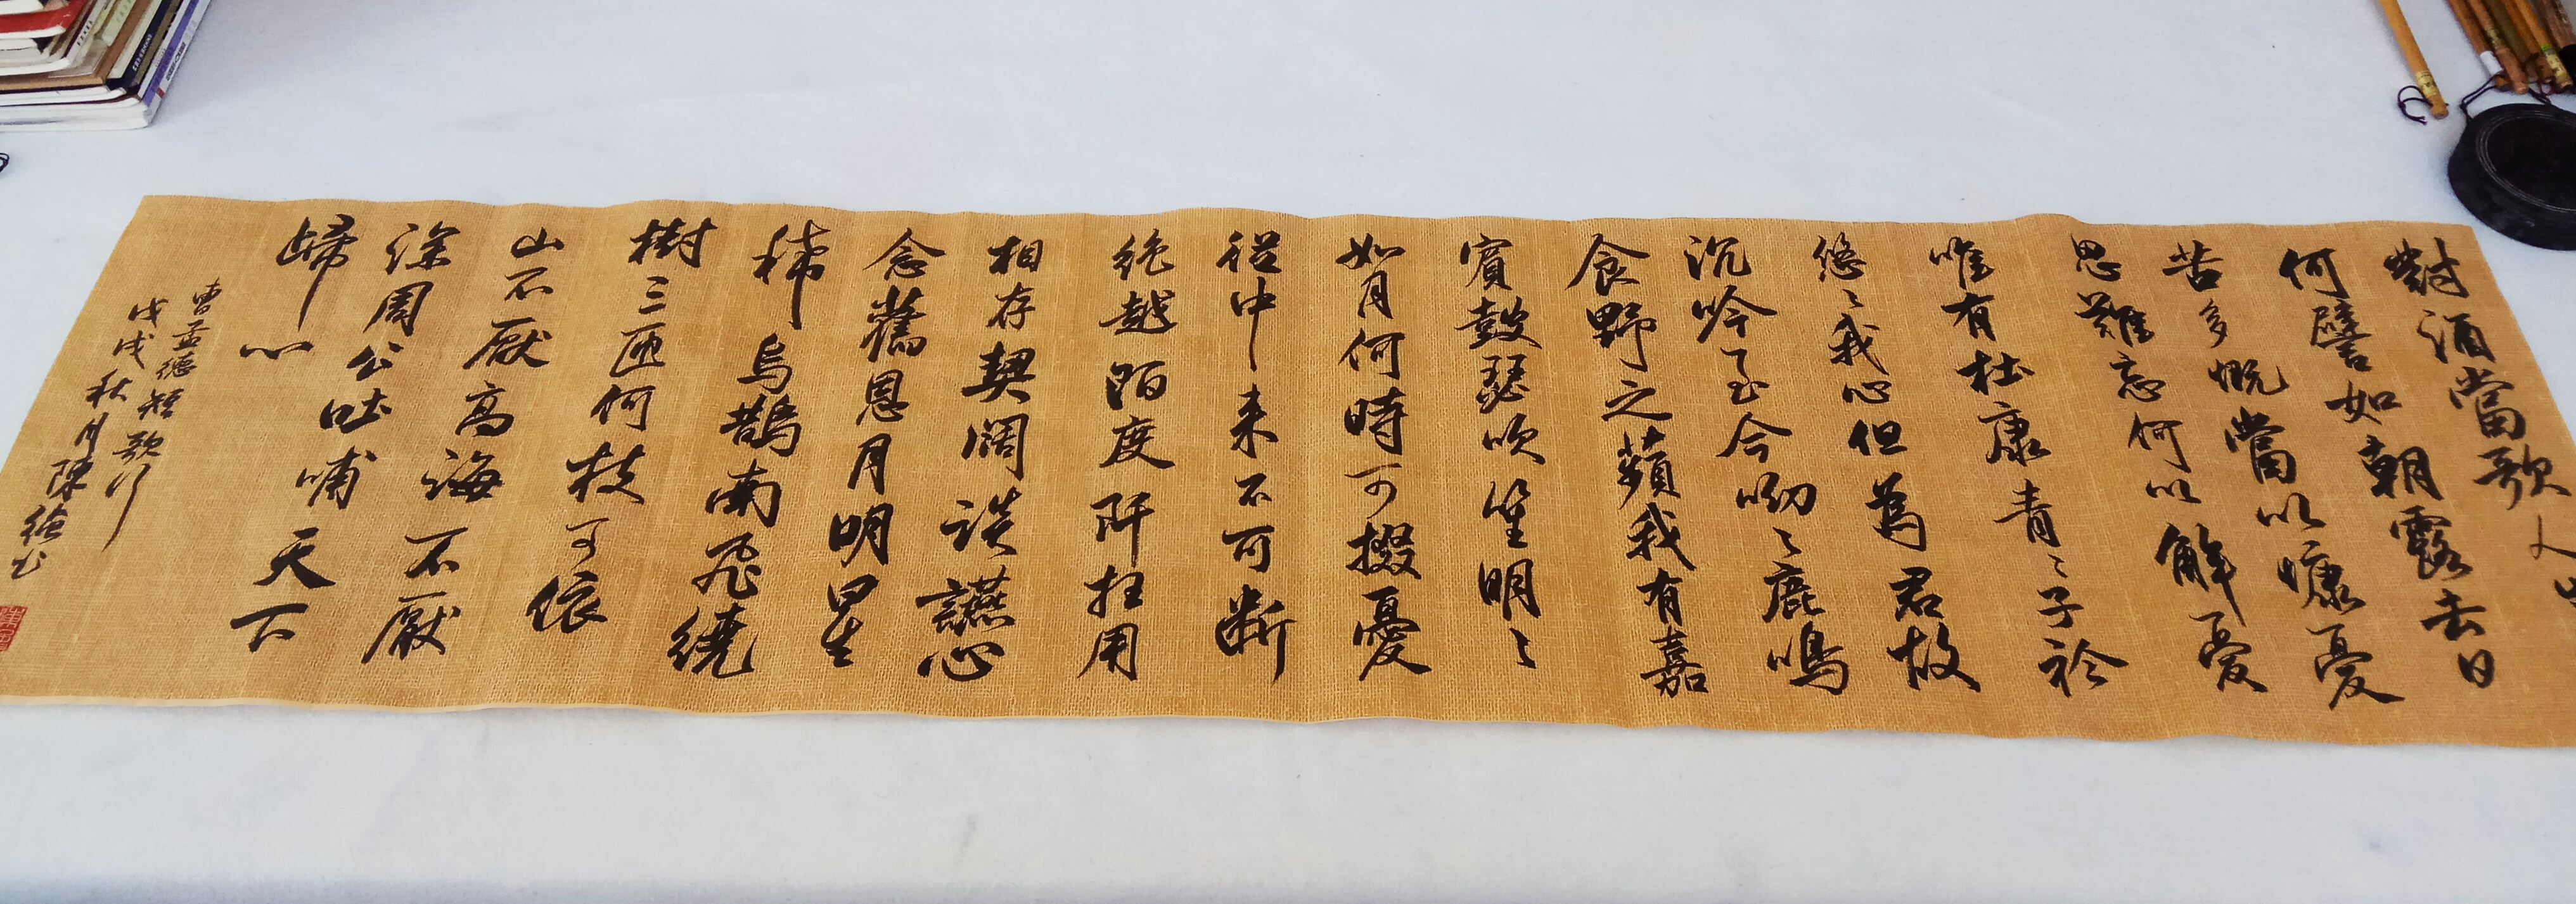 對酒當歌人
何譬如朝露去日
苦多慨當以慷憂
思難忘何以解憂
唯有杜康青〻子衿
悠〻我心但為君故
沉吟至今呦〻鹿鳴
食野之蘋我有嘉
賓鼓瑟吹笙明〻
如月何時可掇憂
從中来不可断
絕越陌度阡枉用
相存契闊談讌心
念舊恩月明星
稀烏鵲南飛繞
樹三匝何枝可依
山不厭高海不厭
深周公吐哺天下
歸心
曹孟德短歌行
戊戌秋月陳書